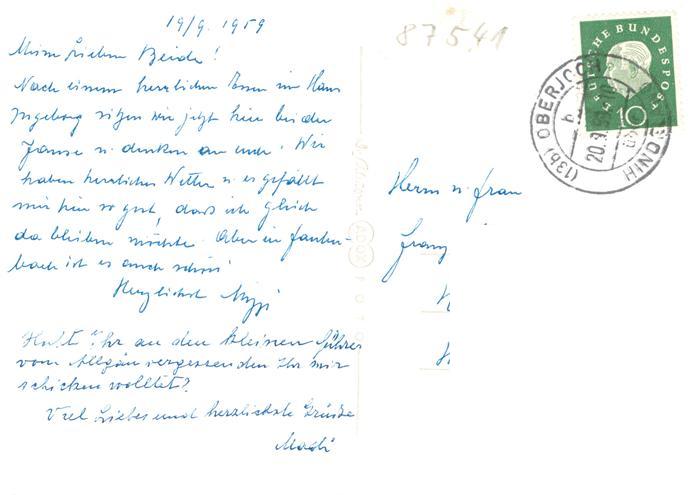 19/9. 1959
Meine Lieben Beide!
Nach einem herrlichen Essen im Haus
Ingeborg sitzen wir jetzt hier bei der
Jause u. denken an euch. Wir
haben herrliches Wetter u. es gefällt
mir hier so gut, dass ich gleich
da bleiben möchte. Aber in
bach ist es auch schön!
Herzlichst
Habt Ihr an den kleinen Führer
vom Allgäu vergessen den Ihr mir
schicken wolltet?
Viel Liebes und herzlichste Grüsse
Madi
87541
DEUTSCHE BUNDESPOST
10
(13b) OBERJOCH
20.9.59
HINDE
Herrn u. Frau
Franz